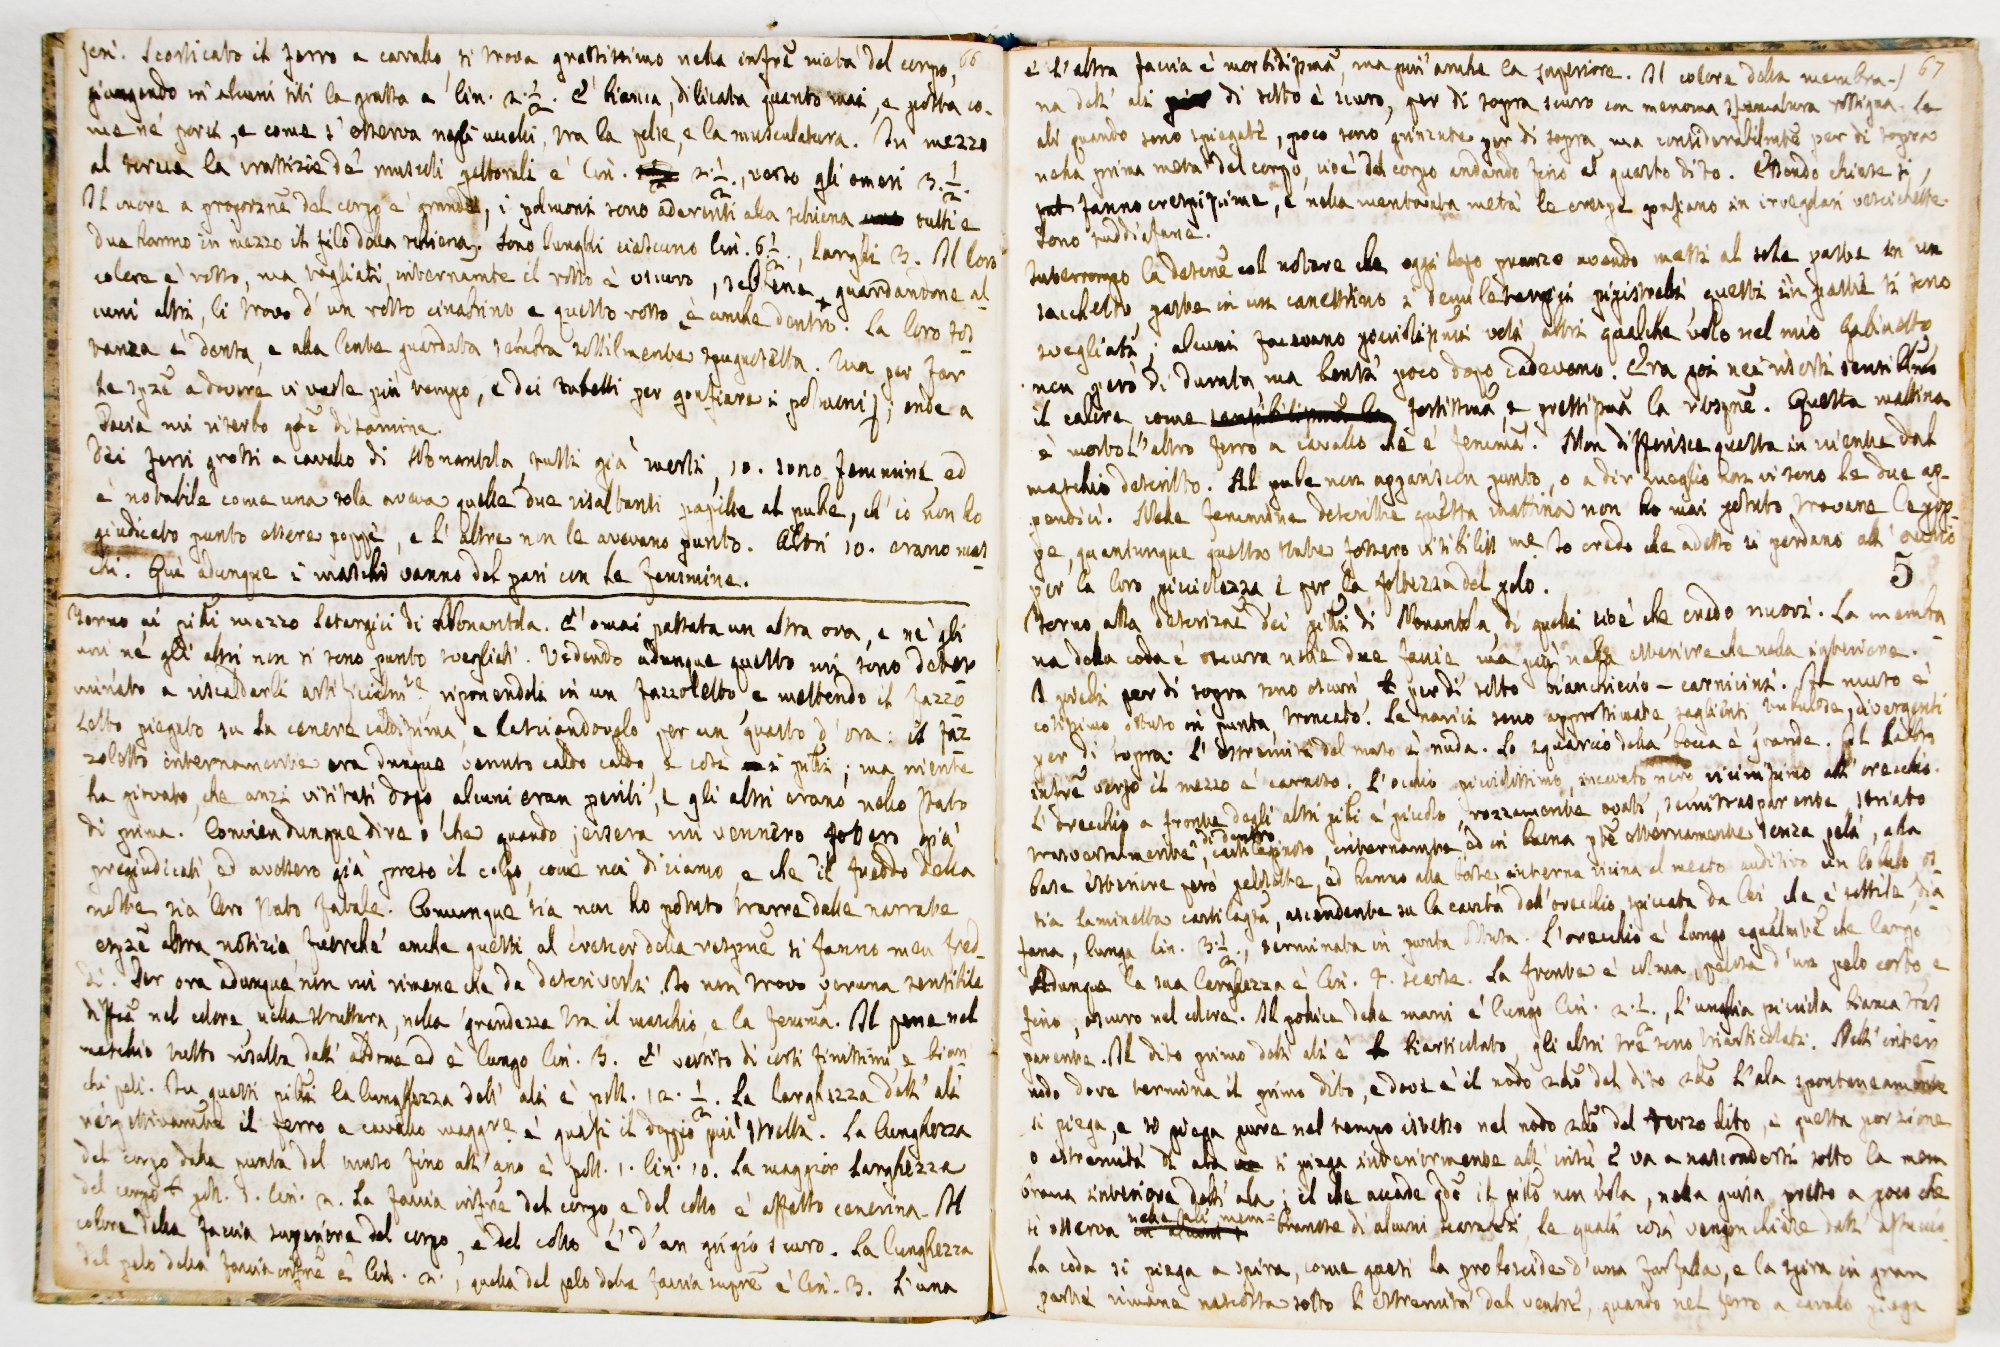 jeri. Scorticato il ferro a cavallo, si trova grassissimo nella infrē metà del corpo, 66
giungendo in alcuni siti la grassa a lin. 2.½. È bianca, dilicata quanto mai, e posta co-
me ne' porci, e come s'osserva negli uccelli, tra la pelle, e la musculatura. In mezzo
al torace la crassizie de' muscoli pettorali è lin. 2.½., verso gli omeri 3.½.
Il cuore a proporznē del corpo è grande, i polmoni sono aderenti alla schiena tutti e
due hanno in mezzo il filo della schiena. Sono lunghi ciascuno lin. 6½., larghi 3. Il loro
colore è rosso, ma tagliati internamte il rosso è oscuro, sebbene guardandone al-
cuni altri, li trovo d'un rosso cinabrino e questo rosso è anche dentro. La loro sos-
tanza è densa, e alla lente guardata sembra sottilmente spugnosetta. Ma per far
le spzē a dovere vi vuole più tempo, e dei tubetti per gonfiare i polmoni; onde a
Pavia mi riserbo qtē disamine.
Dei ferri grossi a cavallo di Nonantola tutti già morti, 10. sono femmine ed
è notabile come una sola aveva quelle due risaltanti papille al pube, ch'io non ho
giudicato punto essere poppe, e l'altre non le avevano punto. Altri 10. erano mas-
chi. Qui adunque i maschi vanno del pari con le femmine.
Torno ai pilli mezzo letargici di Nonantola. È omai passata un altra ora, e nè gli
uni nè gli altri non si sono punto svegliati. Vedendo adunque questo mi sono deter-
minato a riscaldarli artificialmte riponendoli in un fazzoletto, e mettendo il fazzo-
letto piegato su la cenere caldissima, e lasciandovelo per un quarto d'ora: il faz-
zoletto internamente era dunque venuto caldo caldo, e così i pilli; ma niente
ha giovato, che anzi visitati dopo, alcuni eran periti, e gli altri erano nello stato
di prima. Convien dunque dire o che quando jersera mi vennero fossero già
pregiudicati, ed avessero già preso il colpo, come noi diciamo, e che il freddo della
notte sia loro stato fatale. Comunque sia non ho potuto trarre dalle narrate
espzē altra notizia, fuorchè anche questi al crescer della respznē si fanno men fred-
di. Per ora adunque non mi rimane che da descriverli. Io non trovo veruna sensibile
diffzā nel colore, nella struttura, nella grandezza tra il maschio, e la femmā. Il pene nel
maschio molto risalta dall'addome ed è lungo lin. 3. È vestito di corti finissimi e bian-
chi peli. In questi pilli la lunghezza dell'ali è poll. 12.½. La larghezza dell'ali
rispettivamte il ferro a cavallo maggre è quasi il doppio più stretta. La lunghezza
del corpo dalla punta del muso fino all'ano è poll. 1. lin. 10. La maggior larghezza
del corpo è poll. 1. lin. 2. La faccia infre del corpo e del collo è affatto cenerina. Il
colore della faccia superiore del corpo, e del collo è d'un grigio scuro. La lunghezza
del pelo della faccia infrē è lin. 2., quella del pelo della faccia suprē è lin. 3. L'una
e l'altra faccia è morbidissmā, ma più anche la superiore. Il colore della membra- 67
na dell'ali di sotto è scuro, per di sopra scuro con menoma sfumatura rossigna. Le
ali quando sono spiegate, poco sono grinzute per di sopra, ma considerabilmtē per di sopra
nella prima metà del corpo, cioè dal corpo andando fino al quarto dito. Essendo chiuse si
fanno crespissime, e nella mentovata metà le crespe gonfiano in irregolari vescichette.
Sono suddiafane.
Interrompo la descrznē col notare che oggi dopo pranzo avendo messi al sole parte in un
sacchetto parte in un canestrino i semiletargici pipistrelli questi in parte si sono
svegliati; alcuni facevano picciolissimi voli, altri qualche volo nel mio Gabinetto
non però di durata, ma bensì poco dopo cadevano. Era poi nei desti sensiblmo
il calore come fortissmā, e prestissmā la respznē. Questa mattina
è morto l'altro ferro a cavallo che è femmnā. Non differisce questa in niente dal
maschio descritto. Al pube non appariscon punto, o a dir meglio non vi sono le due ap-
pendici. Nelle femmine descritte questa mattina non ho mai potuto trovare le pop-
pe, quantunque questa state fossero visibilissme. Io credo che adesso si perdano all'occhio
per la loro picciolezza e per la foltezza del pelo. 5
Torno alla descrizne dei pilli di Nonantola, di quelli cioè che credo nuovi. La membra-
na della coda è oscura nelle due faccie ma più nella esteriore che nella interiore.
I piedi per di sopra sono oscuri e per di sotto bianchiccio-carnicini. Il muso è
cortissimo ottuso in punta, troncato. Le narici sono approssimate, saglienti, tubulose, divergenti
per di sopra. L'estremità del muso è nuda. Lo squarcio della bocca è grande. Il labbro
infre verso il mezzo è carnoso. L'occhio picciolissimo, incavato nero vicinissimo all'orecchio.
L'orecchio a fronte degli altri pilli è piccolo, rozzamente ovale, semitrasparente, striato
trasversalmente di dentro, cartilaginoso internamte ed in buona pte esternamente senza peli, alla
base esteriore però pelosette, ed hanno alla parte interna vicina al meato auditivo un lobulo os-
sia laminetta cartilagnā, ascendente su la cavità dell'orecchio, spiccata da lei, che è sottile, dia-
fana, lunga lin. 3.½., terminata in punta ottusa. L'orecchio è lungo egualmtē che largo.
Adunque la sua larghezza è lin. 7. scarse. La fronte è colma, pelosa d'un pelo corto e
fino, oscuro nel colore. Il pollice delle mani è lungo lin. 2.½., l'unghia picciola bianca tras-
parente. Il dito primo dell'ali è biarticolato, gli altri tre sono triarticolati. Nell'inter-
nodo dove termina il primo dito, e dove è il nodo 2do del dito 2do l'ala spontaneamente
si piega, e si piega pure nel tempo istesso nel nodo 2do del terzo dito, e questa porzione
o estremità di ala si piega interiormente all'insù e va a nascondersi sotto la mem-
brana interiore dell'ala; il che accade qdo il pillo non vola, nella guisa presso a poco che
si osserva nelle ali mem-branose di alcuni scarabei, le quali così vengon chiuse dall'astuccio.
La coda si piega a spira, come quasi la proboscide d'una farfalla, e la spira in gran
parte rimane nascosta sotto l'estremità del ventre, quando nel ferro a cavallo piega